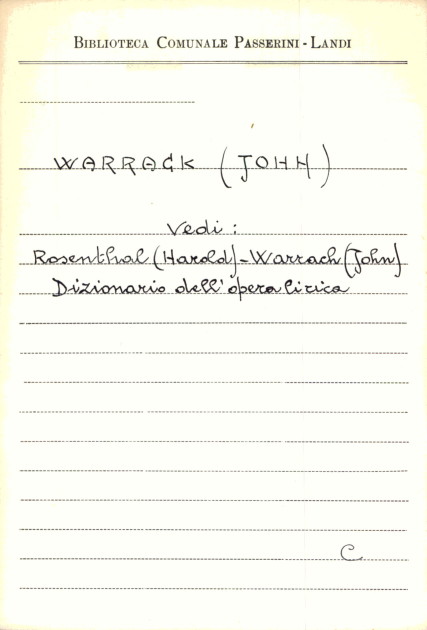 BIBLIOTECA COMUNALE PASSERINI-LANDI
WARRACK (JOHN)
Vedi:
Rosenthal (Harold)-Warrach (John)
Dizionario dell'opera lirica
C